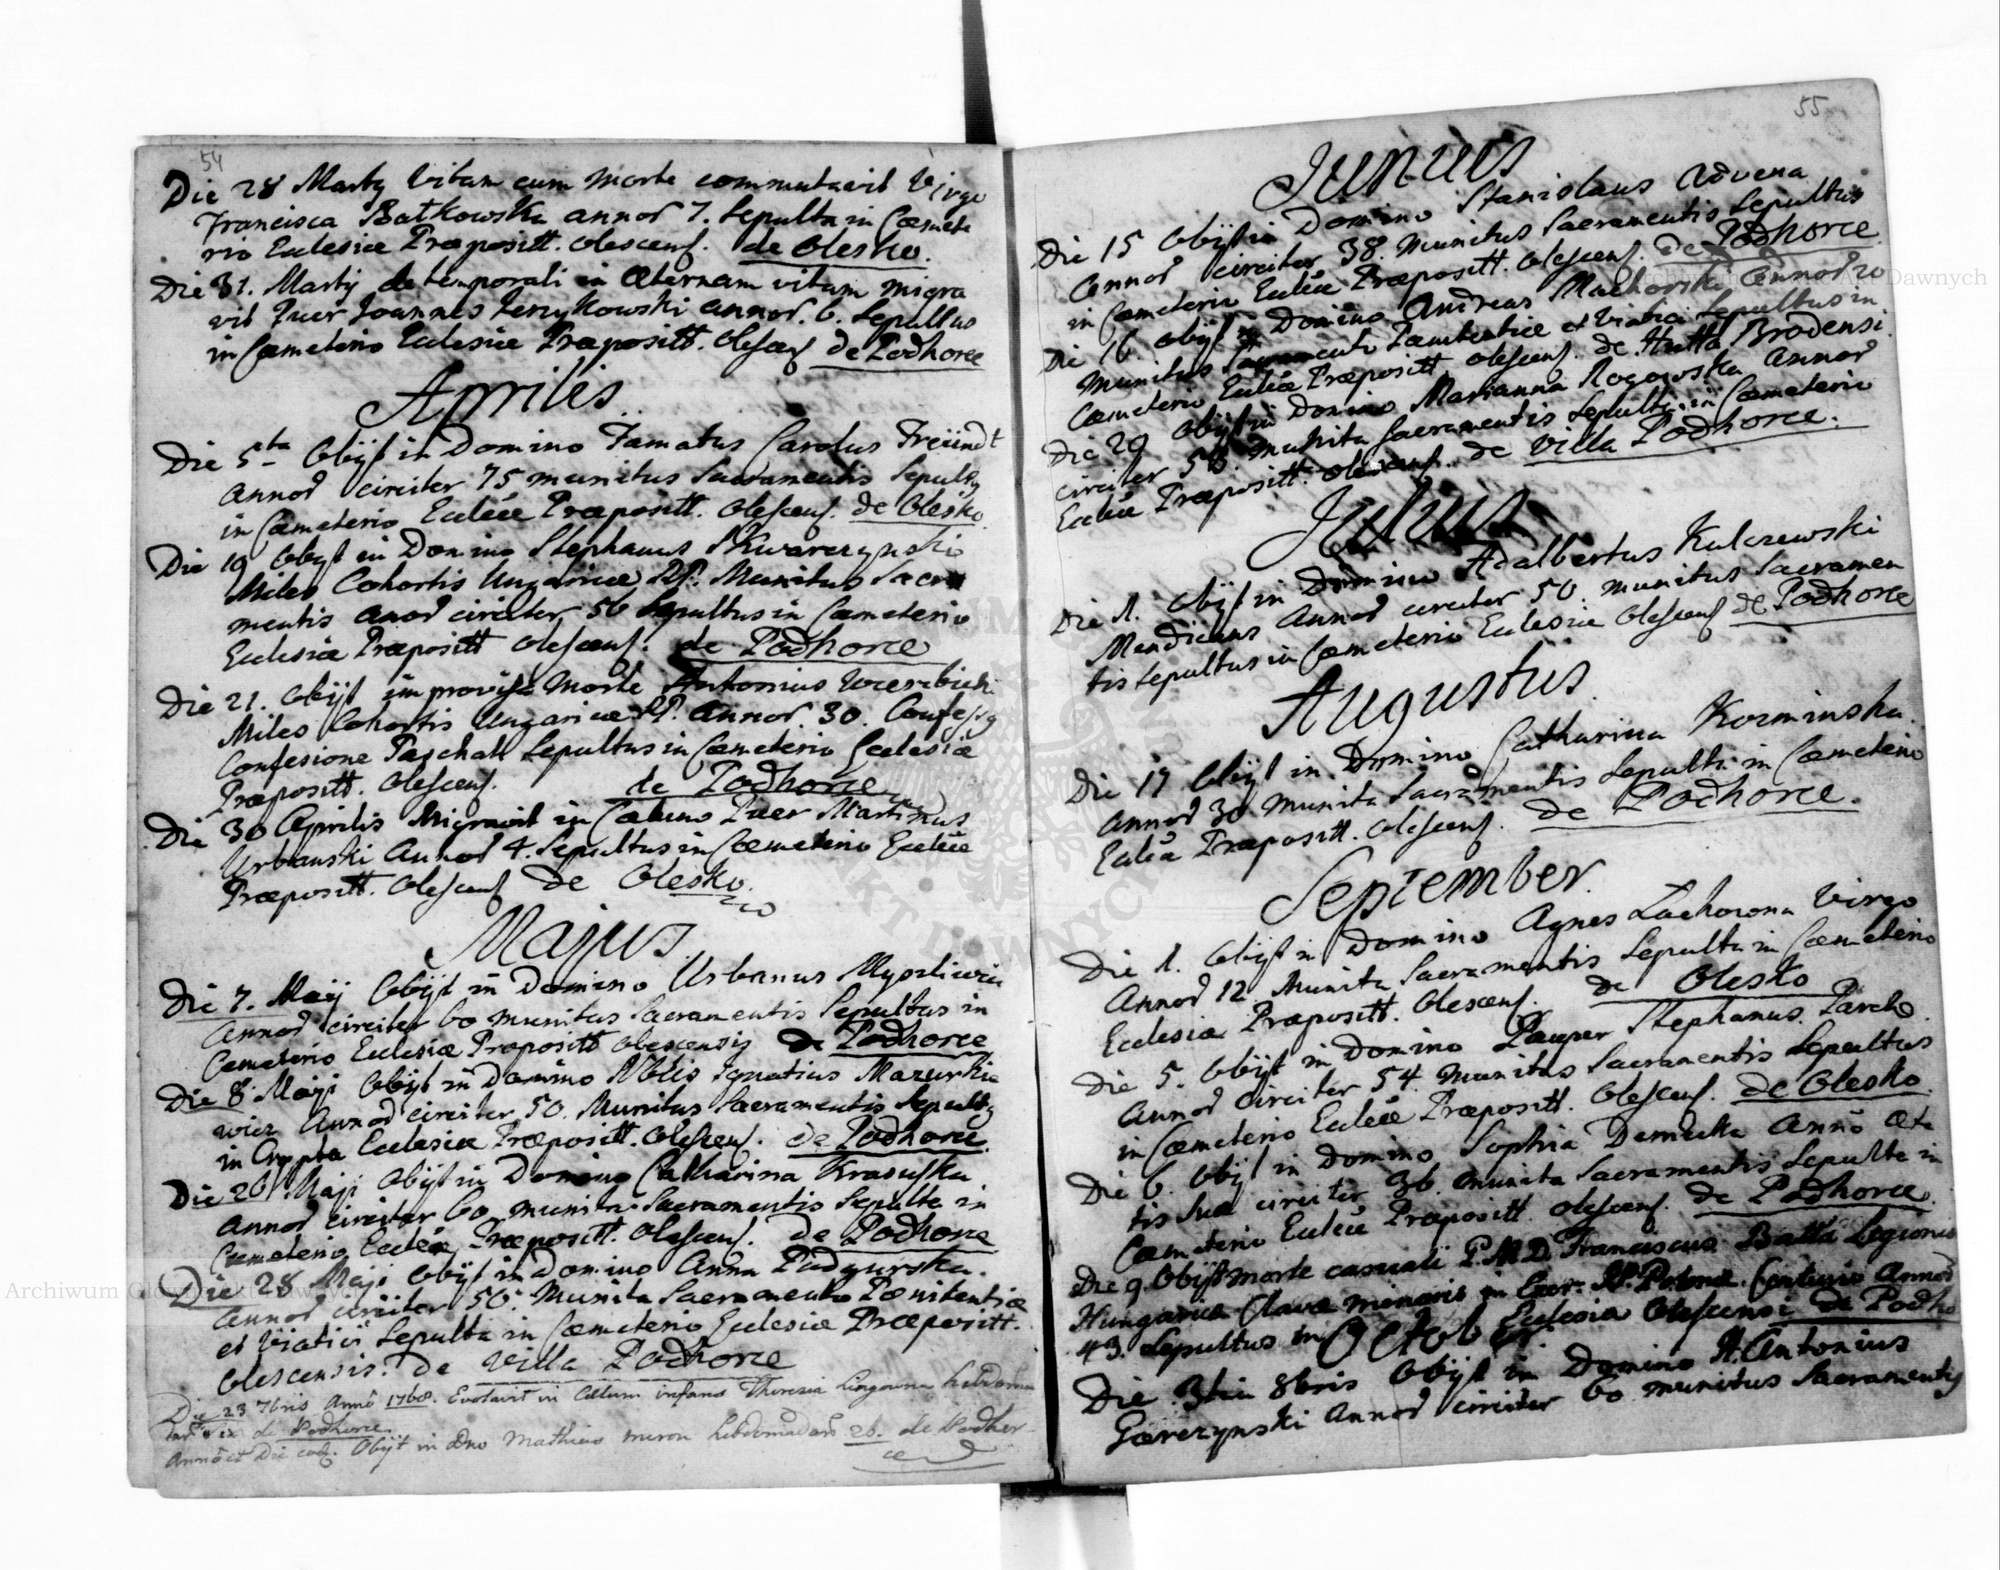 54
Die 28 Martij Vitam cum Morte commutavit Virgo
Francisca Batkowska annor 7. Sepulta in Cæmete
rio Ecclesiæ Præpositt. Olescens. de Olesko.
Die 31. Martij de temporali in Æternam vitam migra
vit Puer Joannes Jerzykowski annor. 6. Sepultus
in Cæmeterio Ecclesiæ Præpositt. Olescens de Podhorce
Aprilis
Die 5ta Obijt in Domino Famatus Carolus Freündt
Annor circiter 75 munitus Sacramentis Sepultg
in Cæmeterio Eccleæ Præpositt. Olescens. de Olesko
Die 19 Obijt in Domino Stephanus Skwarczynski
Miles Cohortis Ungaricæ RP. Munitus Sacra
mentis anor circiter 56 Sepultus in Cæmeterio
Ecclesiæ Præpositt Olescens. de Podhorce
Die 21. Obijt improvisa Morte Antonius Wierzbicki
Miles Cohortis Ungaricæ RP. Annor. 30. Confessg
Confesione Paschali Sepultus in Cæmeterio Ecclesiæ
Præpositt. Olescens. de Podhorce
Die 30 Aprilis Migravit in Cælum Puer Martinus
Urbanski Annor 4. Sepultus in Cæmeterio Eccleæ
Præpositt. Olescens de Olesko.
Majus
Die 7. Maij Obijt in Domino Urbanus Mysliwiec
Annor circiter 60 munitus Sacramentis Sepultus in
Cemeterio Ecclesiæ Præpositt Olescensis de Podhorce
Die 8 Maji Obijt in Domino Nblis Ignatius Mazurkie
wicz Annor circiter 50. Munitus Sacramentis Sepultg
in Crypta Ecclesiæ Præpositt. Olescens. de Podhorce
Die 26 Maji Obijt in Domino Catharina Krasuska
Annor circiter 60 munita Sacramentis Sepulta in
Cæmeterio Eccleæ Præpositt. Olescens. de Podhorce
Die 28 Maji Obijt in Domino Anna Padgurska.
Annor circiter 50. Munita Sacramento Pænitentiæ
et Viatici Sepulta in Cæmeterio Ecclesiæ Præpositt.
Olescensis. de Villa Podhorce
Die 23 7bris Annô 1768. Evolavit in Cælum infans Theresia hebdoma
de Podhorce.
Annô et Die eod. Obijt in Dno Mathieus hebdomadar 26. de Podhor
ce
55
Junius
Die 15 Obijt in Domino Stanislaus Advena
Annor circiter 38. Munitus Sacramentis Sepultus
in Cæmeterio Eccleæ Præpositt. Olescens. de Podhorce
Die 16. Obijt in Domino Andreas Machorski Annor 20
Munitus Sacramento Pænitentiæ et Viatici Sepultus in
Cæmeterio Eccleæ Præpositt Olescens. de Hutta Brodensi
Die 29 Obijt in Domino Marianna Rogowska Annor
circiter 58. munita Sacramentis Sepulta in Cæmeterio
Eccleæ Præpositt. Olescens. de Villa Podhorce.
Julius
Die 1. Obijt in Domino Adalbertus Kulczewski
Mendicus Annor circiter 50. munitus Sacramen
tis Sepultus in Cæmeterio Ecclesiæ Olescens de Podhorce
Augustus
Die 17 Obijt in Domino Catharina Kozminska
Annor 30 Munita Sacramentis Sepulta in Cæmeterio
Eccleæ Præpositt. Olescens. de Podhorce.
September
Die 1. Obijt in Domino Agnes Lachowna Virgo
Annor 12 Munita Sacramentis Sepulta in Cæmeterio
Ecclesiæ Præpositt. Olescens. de Olesko
Die 5. Obijt in Domino Pauper Stephanus
Annor circiter 54. Munitus Sacramentis Sepultus
in Cæmeterio Eccleæ Præpositt. Olescens. de Olesko.
Die 6. Obijt in Domino Sophia Annô Æta
tis Suæ circiter 36. munita Sacramentis Sepulta in
Cæmeterio Eccleæ Præpositt. Olescens. de Podhorce.
Die 9. Obijt morte casuali P.M.D. Franciscus Batta Legionis
Hungaricæ Clavæ minoris in Exer. RP. Polonæ Centurio Annor
43. Sepultus in Ecclesia Olescensi de Podho
October
Die 3tia 8bris Obijt in Domino Antonius
Gorczynski Annor circiter 60 munitus Sacramentis
Archiwum Główne Akt Dawnych
Archiwum Główne Akt Dawnych